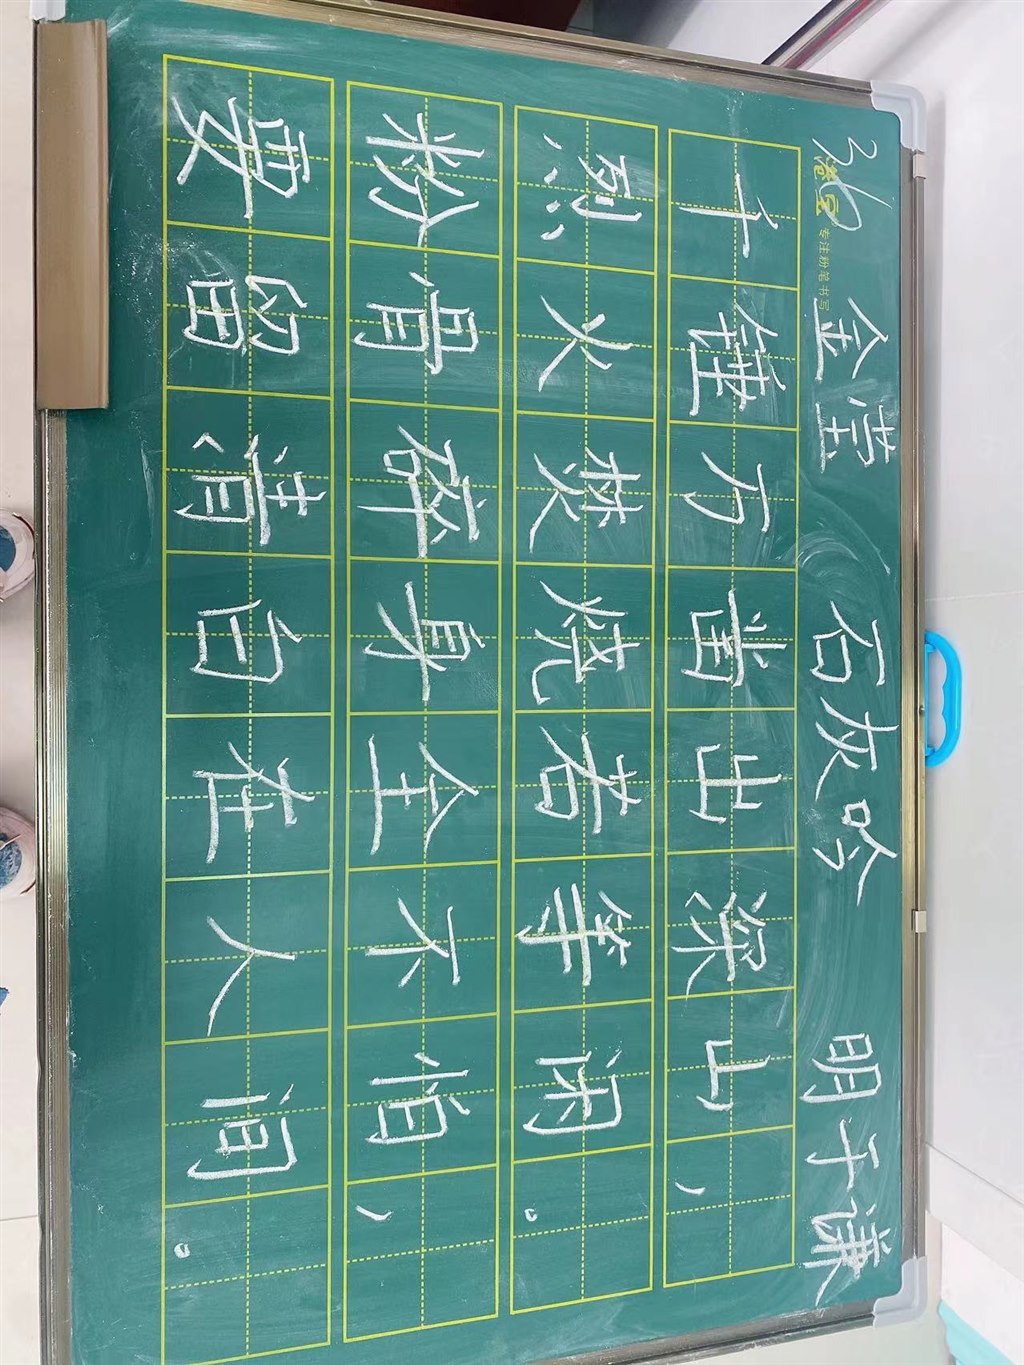 36 金莹 石灰吟 明于谦
港宝 专注粉笔书写
千锤万凿出深山,
烈火焚烧若等闲。
粉骨碎身全不怕,
要留清白在人间。